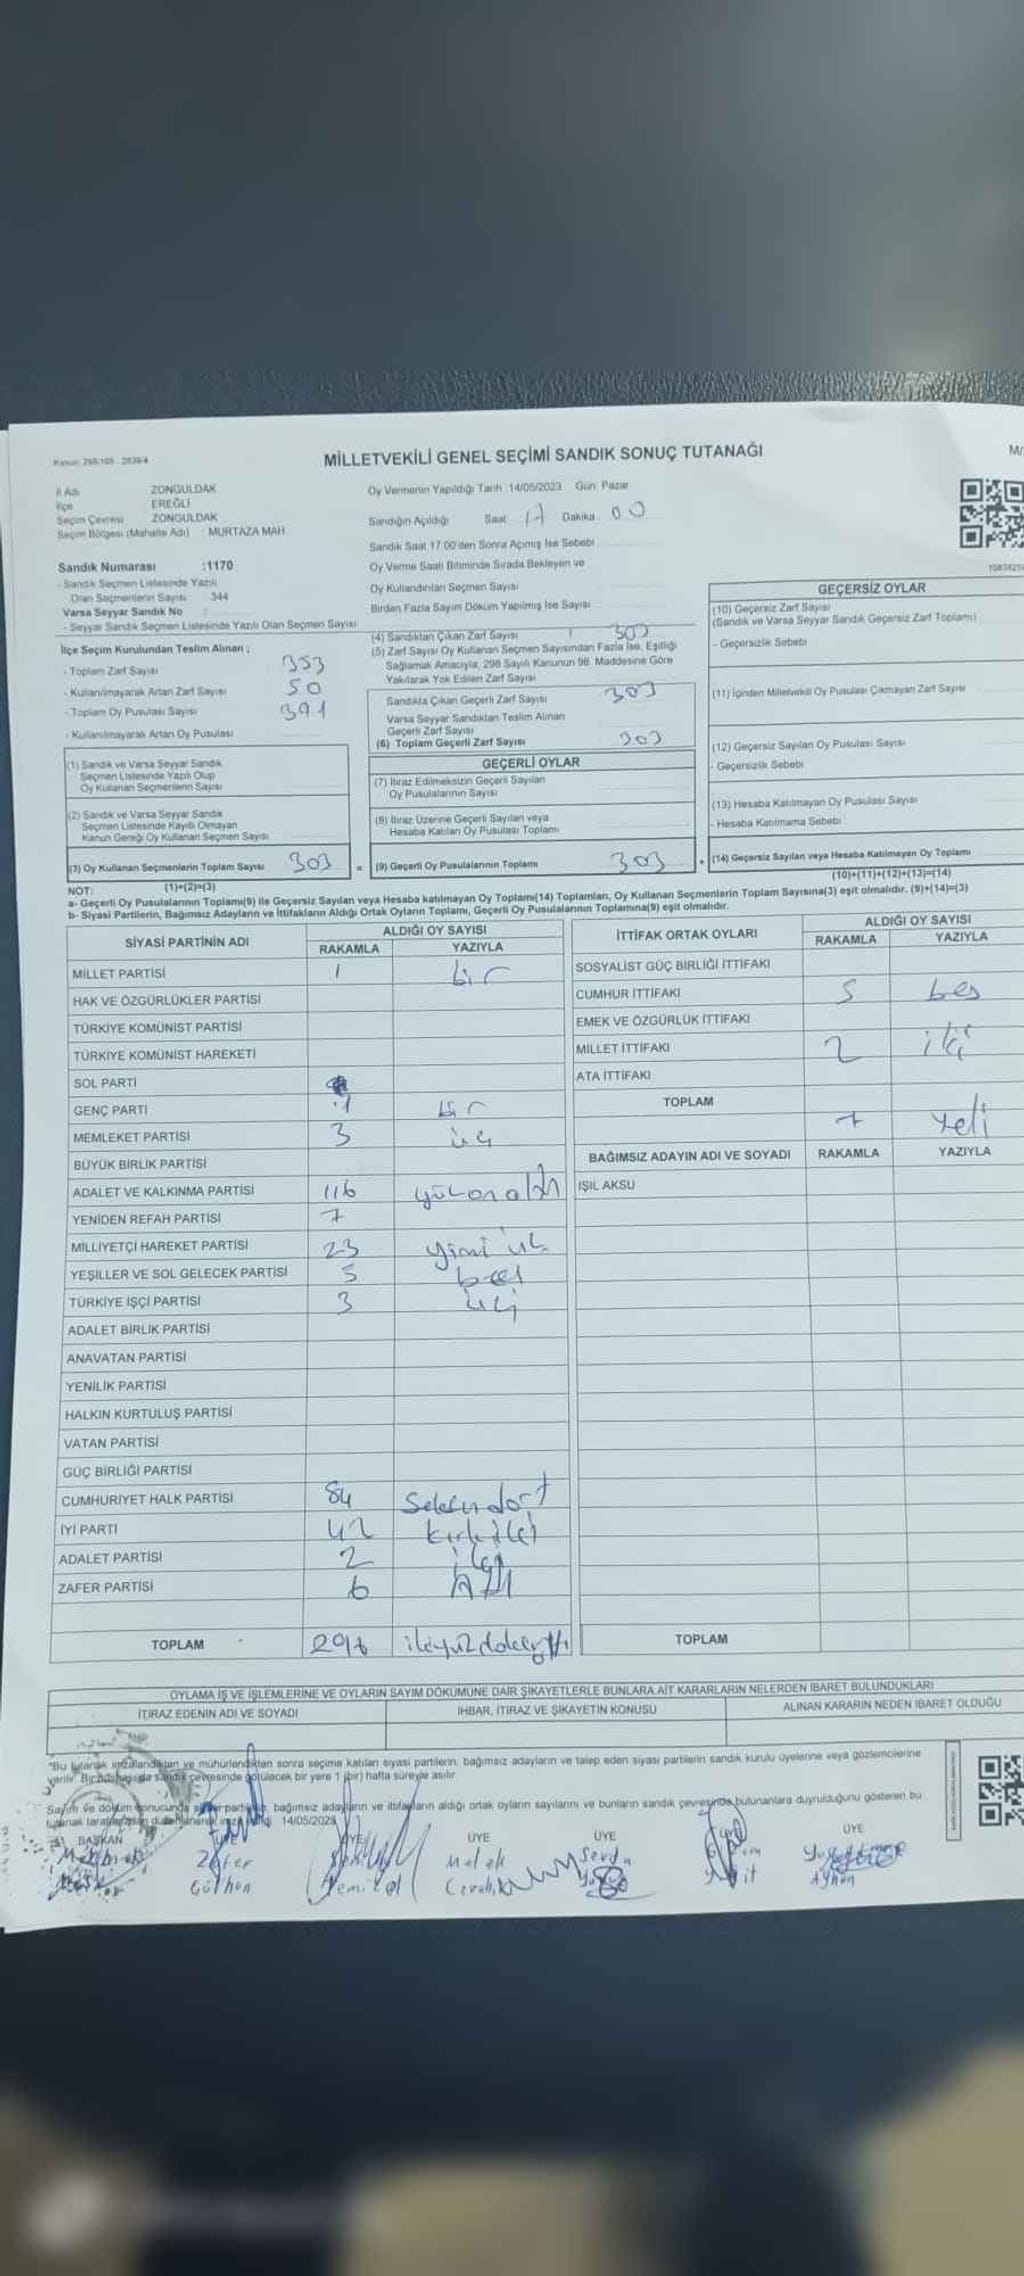 Kanun: 298/105 - 2839/4
MİLLETVEKİLİ GENEL SEÇİMİ SANDIK SONUÇ TUTANAĞI
M/
İl Adı ZONGULDAK
İlçe EREĞLİ
Seçim Çevresi ZONGULDAK
Seçim Bölgesi (Mahalle Adı) : MURTAZA MAH
Sandık Numarası :1170
- Sandık Seçmen Listesinde Yazılı
Olan Seçmenlerin Sayısı : 344
Varsa Seyyar Sandık No :
- Seyyar Sandık Seçmen Listesinde Yazılı Olan Seçmen Sayısı
Oy Vermenin Yapıldığı Tarih :14/05/2023 Gün: Pazar
Sandığın Açıldığı Saat 17 Dakika 00
Sandık Saat 17:00'den Sonra Açılmış İse Sebebi
Oy Verme Saati Bitiminde Sırada Bekleyen ve
Oy Kullandırılan Seçmen Sayısı
Birden Fazla Sayım Döküm Yapılmış İse Sayısı
İlçe Seçim Kurulundan Teslim Alınan ;
- Toplam Zarf Sayısı 353
- Kullanılmayarak Artan Zarf Sayısı 50
- Toplam Oy Pusulası Sayısı 391
- Kullanılmayarak Artan Oy Pusulası
(1) Sandık ve Varsa Seyyar Sandık
Seçmen Listesinde Yazılı Olup
Oy Kullanan Seçmenlerin Sayısı
(2) Sandık ve Varsa Seyyar Sandık
Seçmen Listesinde Kayıtlı Olmayan
Kanun Gereği Oy Kullanan Seçmen Sayısı
(3) Oy Kullanan Seçmenlerin Toplam Sayısı 303
(1)+(2)=(3)
(4) Sandıktan Çıkan Zarf Sayısı : 303
(5) Zarf Sayısı Oy Kullanan Seçmen Sayısından Fazla İse, Eşitliği
Sağlamak Amacıyla, 298 Sayılı Kanunun 98. Maddesine Göre
Yakılarak Yok Edilen Zarf Sayısı
Sandıkta Çıkan Geçerli Zarf Sayısı 303
Varsa Seyyar Sandıktan Teslim Alınan
Geçerli Zarf Sayısı
(6) Toplam Geçerli Zarf Sayısı 303
GEÇERLİ OYLAR
(7) İtiraz Edilmeksizin Geçerli Sayılan
Oy Pusulalarının Sayısı
(8) İtiraz Üzerine Geçerli Sayılan veya
Hesaba Katılan Oy Pusulası Toplamı
= (9) Geçerli Oy Pusulalarının Toplamı 303
GEÇERSİZ OYLAR
(10) Geçersiz Zarf Sayısı
(Sandık ve Varsa Seyyar Sandık Geçersiz Zarf Toplamı)
- Geçersizlik Sebebi
(11) İçinden Milletvekili Oy Pusulası Çıkmayan Zarf Sayısı
(12) Geçersiz Sayılan Oy Pusulası Sayısı
- Geçersizlik Sebebi
(13) Hesaba Katılmayan Oy Pusulası Sayısı
- Hesaba Katılmama Sebebi
+ (14) Geçersiz Sayılan veya Hesaba Katılmayan Oy Toplamı
(10)+(11)+(12)+(13)=(14)
NOT:
a- Geçerli Oy Pusulalarının Toplamı(9) ile Geçersiz Sayılan veya Hesaba katılmayan Oy Toplamı(14) Toplamları, Oy Kullanan Seçmenlerin Toplam Sayısına(3) eşit olmalıdır. (9)+(14)=(3)
b- Siyasi Partilerin, Bağımsız Adayların ve İttifakların Aldığı Ortak Oyların Toplamı, Geçerli Oy Pusulalarının Toplamına(9) eşit olmalıdır.
SİYASİ PARTİNİN ADI ALDIĞI OY SAYISI
RAKAMLA YAZIYLA
MİLLET PARTİSİ 1 bir
HAK VE ÖZGÜRLÜKLER PARTİSİ
TÜRKİYE KOMÜNİST PARTİSİ
TÜRKİYE KOMÜNİST HAREKETİ
SOL PARTİ
GENÇ PARTİ 1 bir
MEMLEKET PARTİSİ 3 üç
BÜYÜK BİRLİK PARTİSİ
ADALET VE KALKINMA PARTİSİ 116 yüzonaltı
YENİDEN REFAH PARTİSİ 7
MİLLİYETÇİ HAREKET PARTİSİ 23 yirmi üç
YEŞİLLER VE SOL GELECEK PARTİSİ 5 beş
TÜRKİYE İŞÇİ PARTİSİ 3 üç
ADALET BİRLİK PARTİSİ
ANAVATAN PARTİSİ
YENİLİK PARTİSİ
HALKIN KURTULUŞ PARTİSİ
VATAN PARTİSİ
GÜÇ BİRLİĞİ PARTİSİ
CUMHURİYET HALK PARTİSİ 84 Seksendört
İYİ PARTİ 42 kırkiki
ADALET PARTİSİ 2 iki
ZAFER PARTİSİ 6 Altı
TOPLAM 296 ikiyüzdoksanaltı
İTTİFAK ORTAK OYLARI ALDIĞI OY SAYISI
RAKAMLA YAZIYLA
SOSYALİST GÜÇ BİRLİĞİ İTTİFAKI
CUMHUR İTTİFAKI 5 beş
EMEK VE ÖZGÜRLÜK İTTİFAKI
MİLLET İTTİFAKI 2 iki
ATA İTTİFAKI
TOPLAM 7 Yedi
BAĞIMSIZ ADAYIN ADI VE SOYADI RAKAMLA YAZIYLA
IŞIL AKSU
TOPLAM
OYLAMA İŞ VE İŞLEMLERİNE VE OYLARIN SAYIM DÖKÜMÜNE DAİR ŞİKAYETLERLE BUNLARA AİT KARARLARIN NELERDEN İBARET BULUNDUKLARI
İTİRAZ EDENİN ADI VE SOYADI İHBAR, İTİRAZ VE ŞİKAYETİN KONUSU ALINAN KARARIN NEDEN İBARET OLDUĞU
"Bu tutanak imzalandıktan ve mühürlendikten sonra seçime katılan siyasi partilerin, bağımsız adayların ve talep eden siyasi partilerin sandık kurulu üyelerine veya gözlemcilerine
verilir" Bir sandık çevresinde görülecek bir yere 1 (bir) hafta süreyle asılır.
Sayım ve döküm sonucunda siyasi partilerin, bağımsız adayların ve ittifakların aldığı ortak oyların sayılarını ve bunların sandık çevresinde bulunanlara duyrulduğunu gösteren bu
tutanak tarafımızdan düzenlenerek imza edildi 14/05/2023
BAŞKAN ÜYE ÜYE ÜYE ÜYE ÜYE
Zafer Melek
Gülhan Ayhan